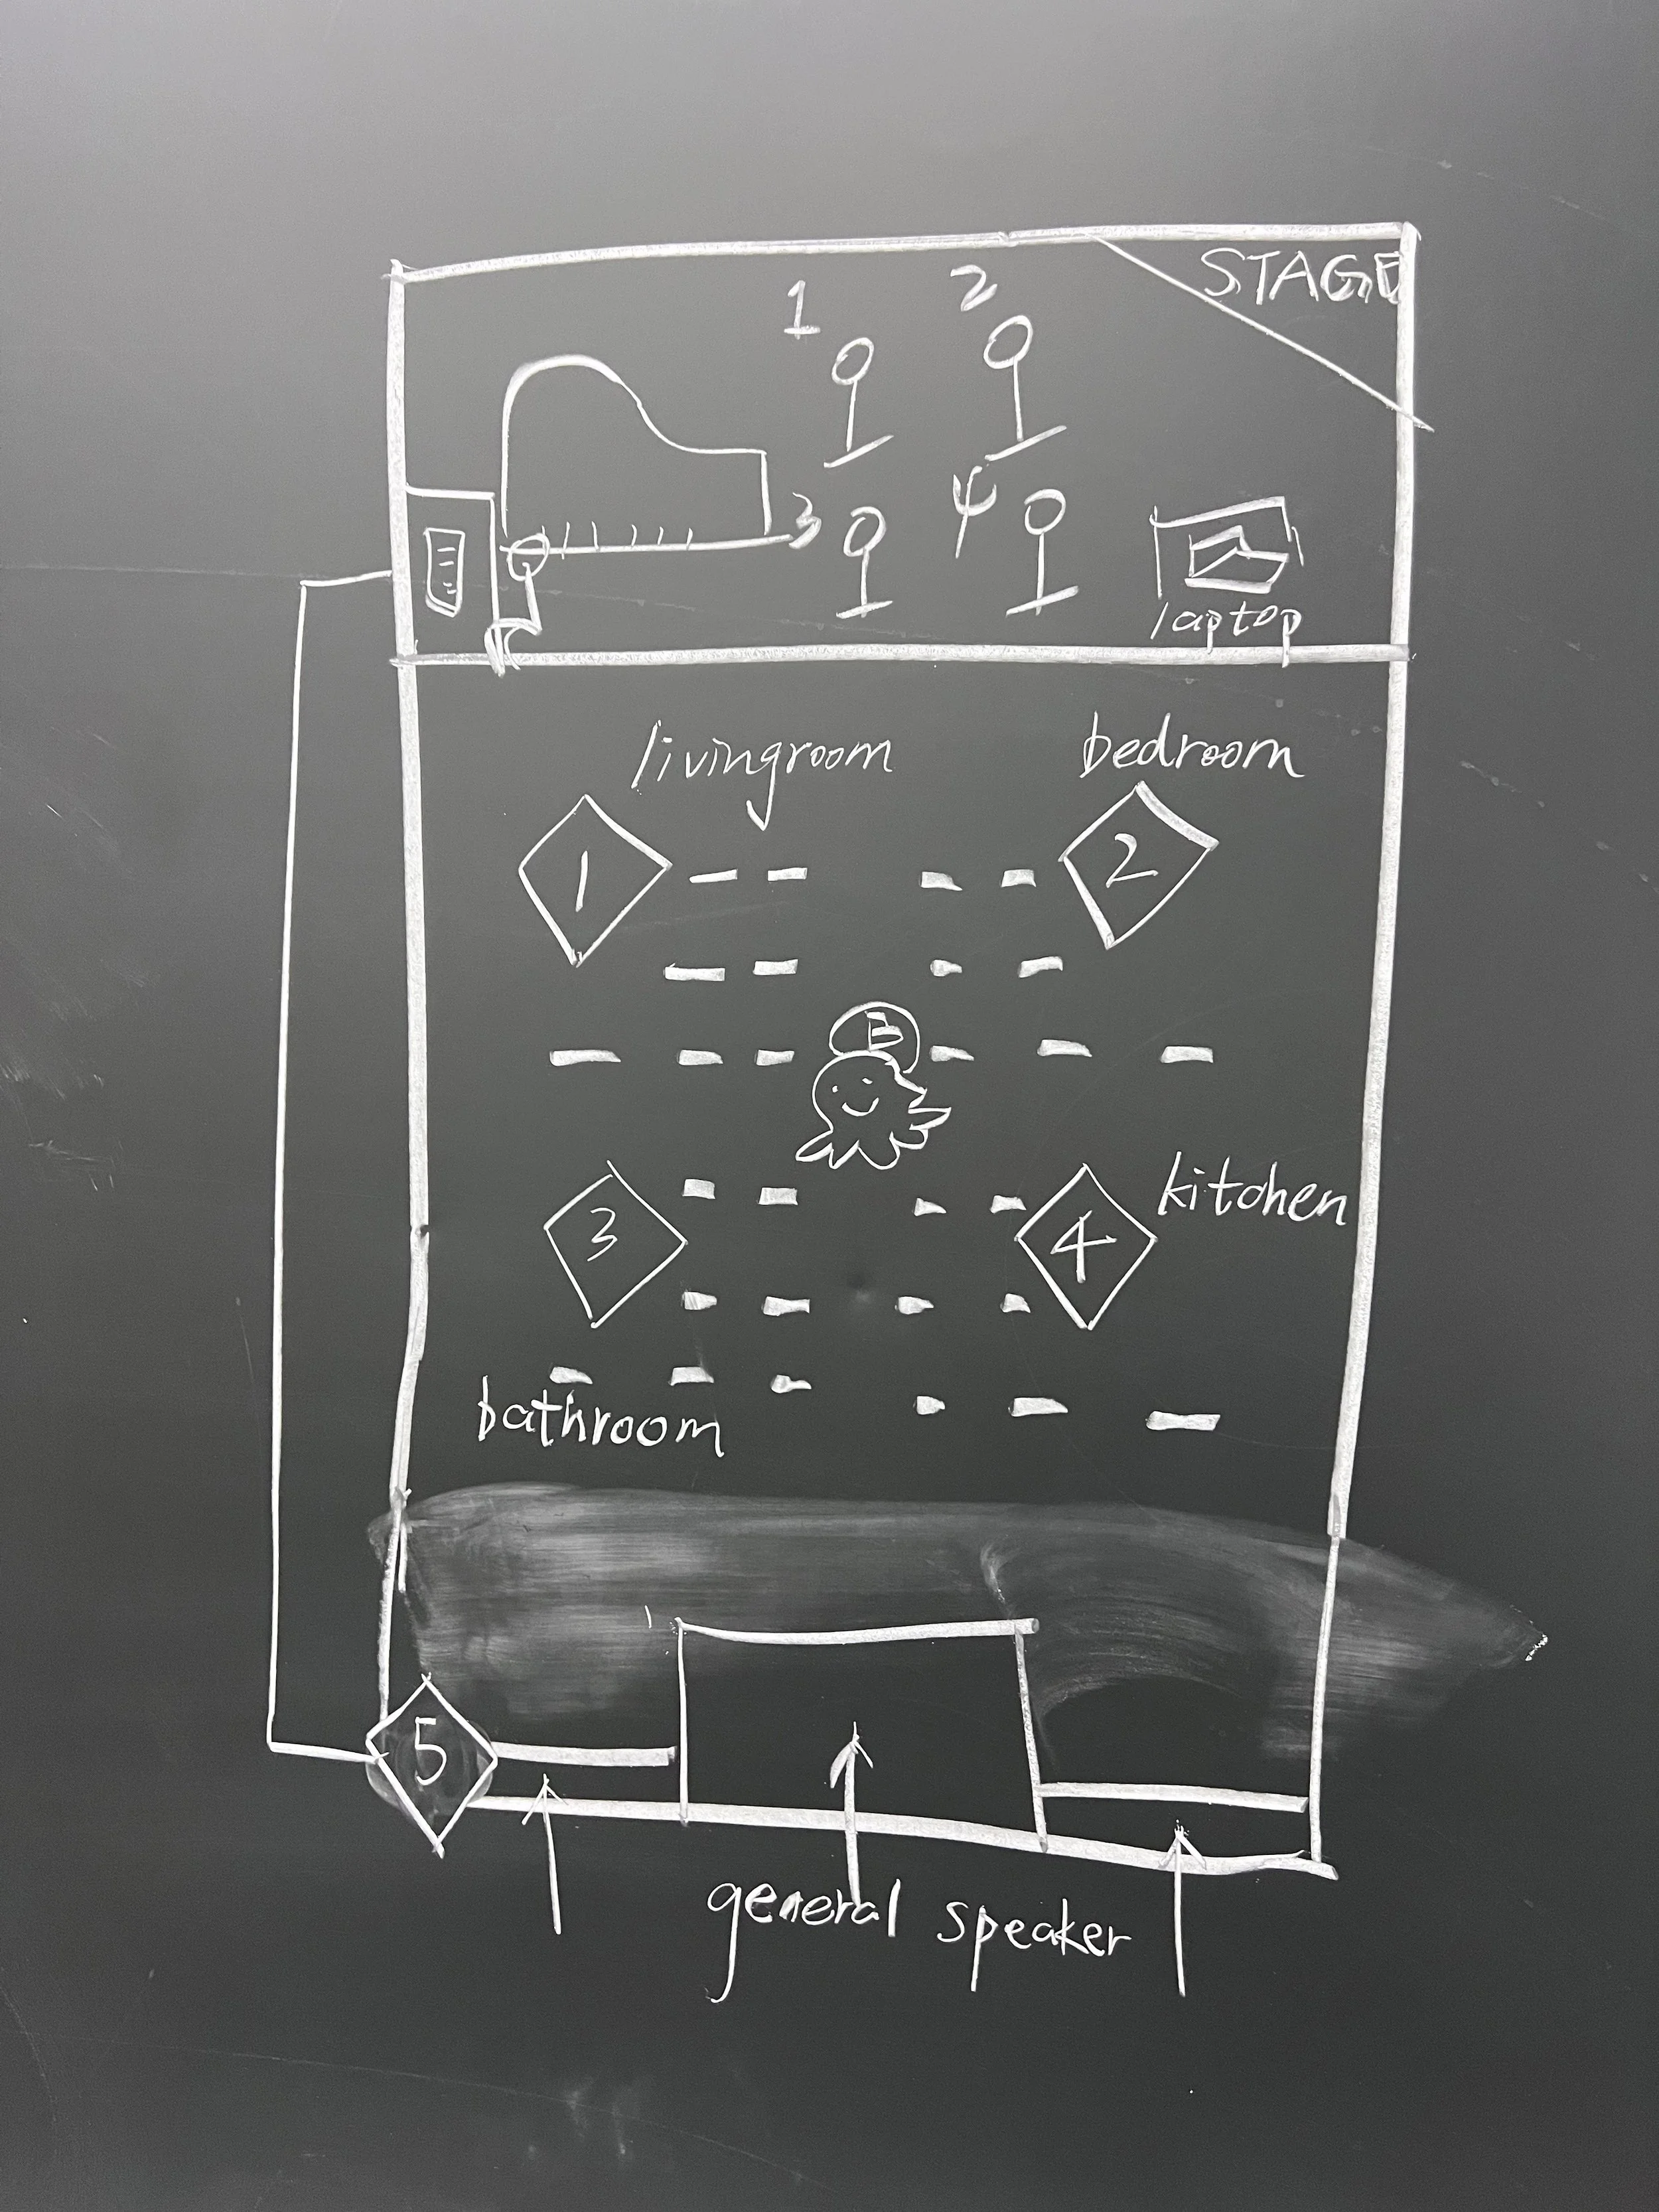 STAGE
1 2
3 4
laptop
livingroom bedroom
1 2
B
kitchen
3 4
bathroom
5
general speaker